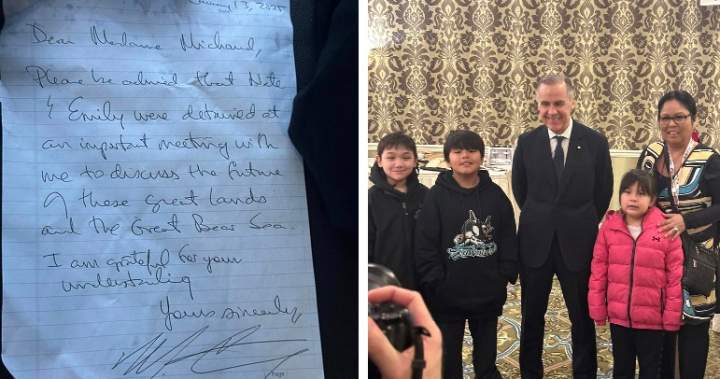 January 13,
Dear Madame Michaud,
Please be advised that Nate
& Emily were detained at
an important meeting with
me to discuss the future
of these great lands
and the Great Bear Sea.
I am grateful for your
understanding
Yours sincerely,